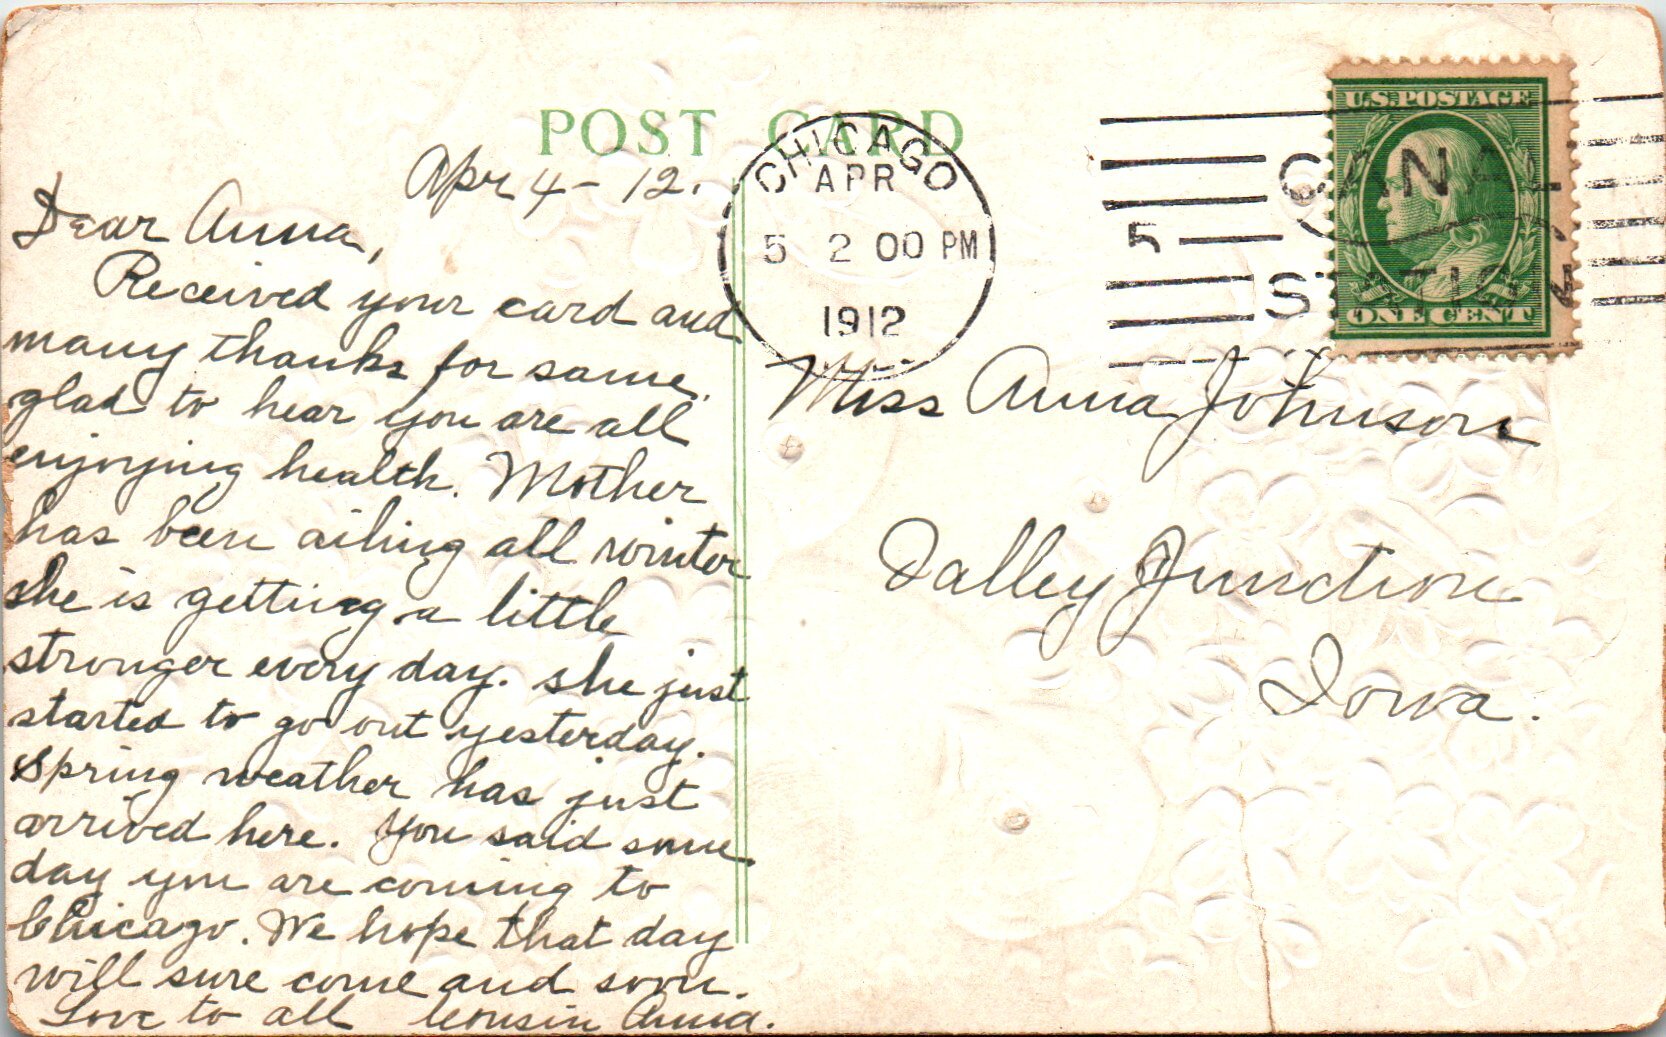 POST CARD
Apr 4 - 12.
Dear Anna,
Received your card and
many thanks for same.
glad to hear you are all
enjoying health. Mother
has been ailing all winter
she is getting a little
stronger every day. she just
started to go out yesterday.
Spring weather has just
arrived here. You said some
day you are coming to
Chicago. We hope that day
will sure come and soon.
Love to all Cousin Anna.
CHICAGO
APR
5 2 00 PM
1912
5
CANAL
STATION
U.S. POSTAGE
ONE CENT
Miss Anna Johnson
Valley Junction
Iowa.